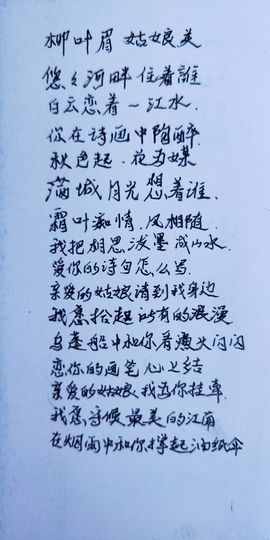 柳叶眉 姑娘美
悠々河畔住着誰
白云恋着一江水.
你在诗画中陶醉.
秋色起.花为媒
满城月光想着谁.
霜叶痴情.风相随
我把相思泼墨成山水.
爱你的诗句怎么写.
亲爱的姑娘请到我身边
我愿拾起所有的浪漫
乌蓬船中和你看渔火闪闪
恋你的画笔心上结
亲爱的姑娘我为你挂牵.
我愿守候最美的江南
在烟雨中和你撑起油纸伞